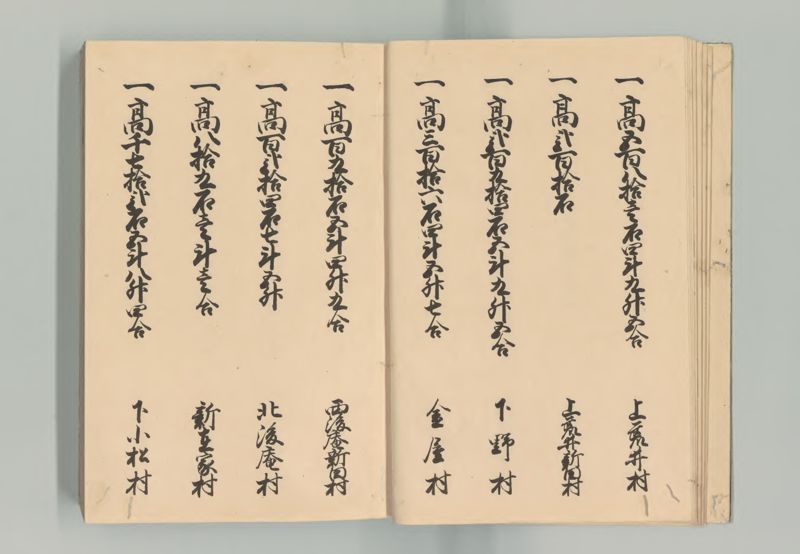 一高五百八拾壱石四斗九升五合 上荒井村
一高弐百拾石 上荒井新田村
一高弐百九拾四石六斗九升五合 下野村
一高三百拾八石四斗五升七合 金屋村
一高百九拾石五斗四升九合 西後庵新田村
一高百弐拾四石七斗五升 北後庵村
一高八拾九石壱斗壱合 新在家村
一高千七拾弐石五斗八升四合 下小松村